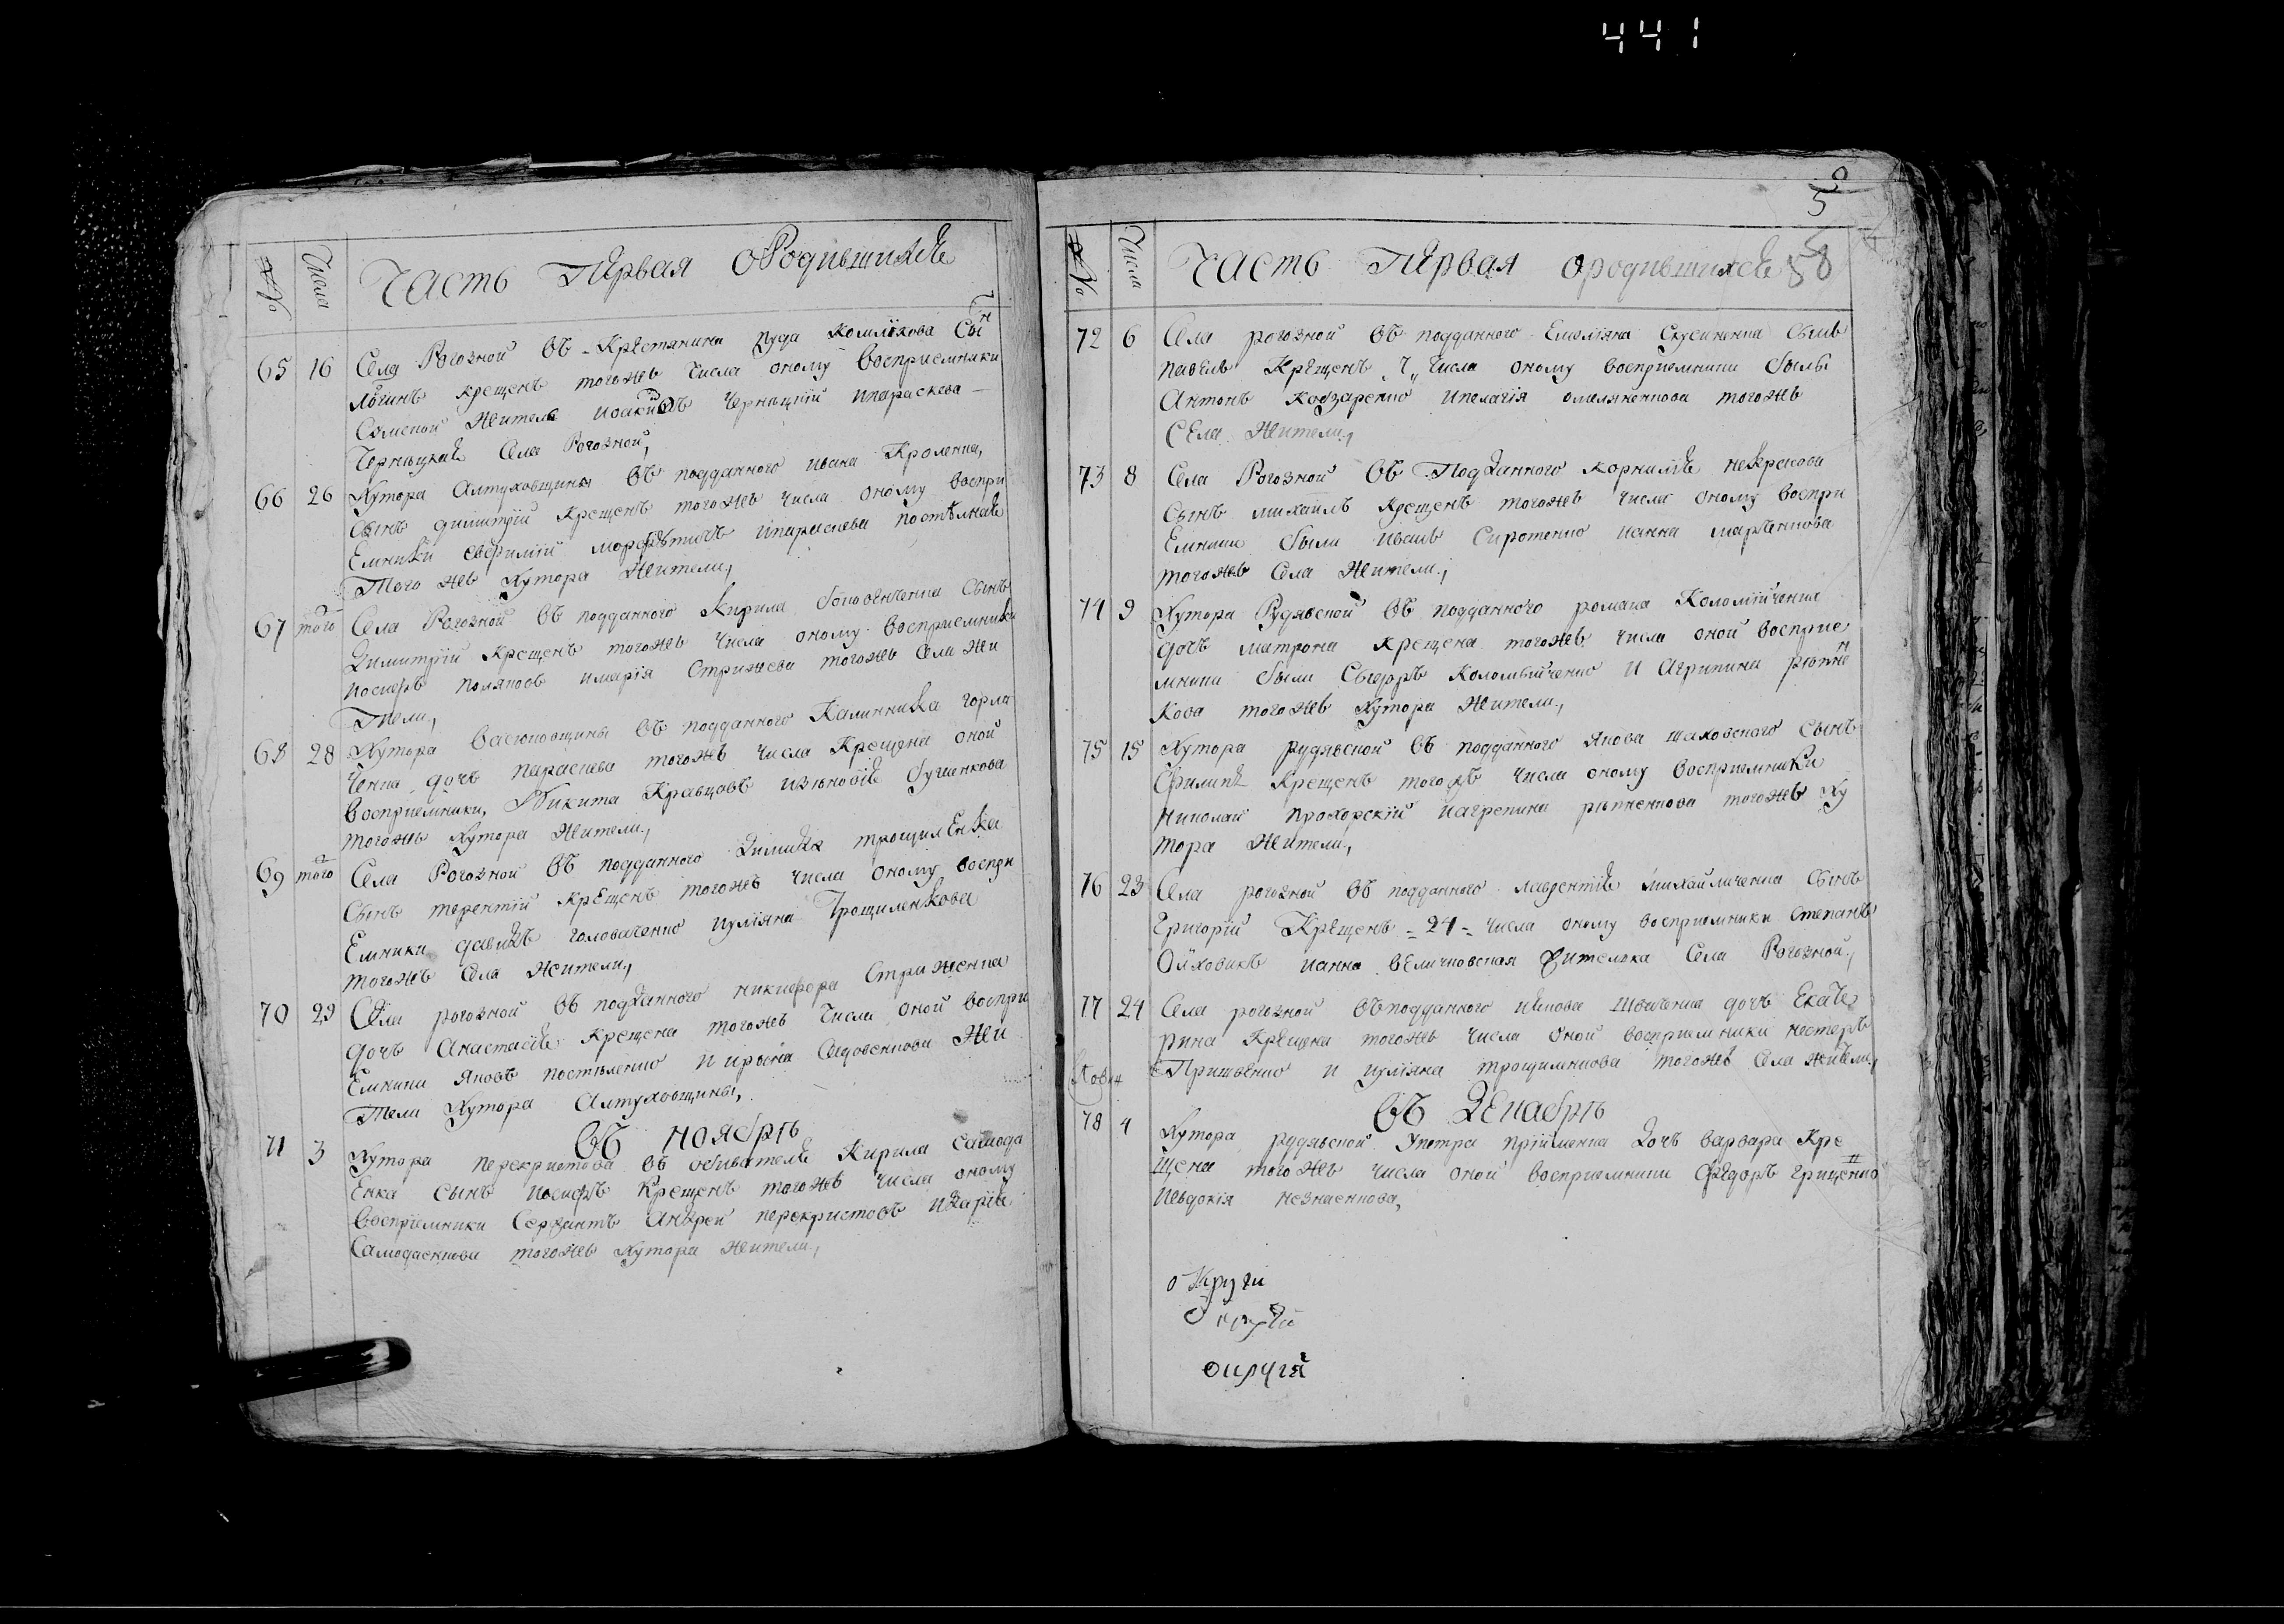 441
№ Числа Часть Первая ородившихся
65 16 Села Рогозной въ Крестянина Іуда Сынъ
Логинъ крещенъ тогожъ Числа оному восприемники
Жители Чернѣцкій ипараскева
Чернѣцкая Села Рогозной,
66 26 Хутора Алтуховщины въ подданного ивана Кроленка,
Сынъ димитрій крещенъ тогожъ числа оному воспри
Емники ипараскева
Того жъ Хутора Жители,
67 того Села Рогозной въ подданного Кирила Сынъ
Димитрій крещенъ тогожъ числа оному восприемники
иосифъ Поляковъ имарія Стрижева тогожъ Села Жи
Тели,
68 28 Хутора въ подданного Калинника горла
Ченка дочъ параскева тогожъ числа Крещена оной
восприемники, Никита Кравцовъ
тогожъ Хутора Жители,
69 того Села Рогозной въ подданного трощилЕнка
Сынъ терентій КрЕщенъ тогожъ числа оному воспри
Емники давидъ головаченко иуліяна Трощиленкова
тогожъ Села Жители,
70 29 Села рогозной въ подданного никифора Стриженка
дочъ Анастасія Крещена тогожъ Числа оной воспри
Емники Яковъ постѣленко Жи
Тели Хутора Алтуховщины,
въ ноябрѣ
71 3 Хутора перекристова въ обивателя Кирила Самода
Енка Сынъ иосифъ Крещенъ тогожъ числа оному
восприемники Сержантъ Андрей перекристовъ идарія
Самодаенкова тогожъ Хутора Жители,
5
58
№ Числа Часть Первая ородившихся
72 6 Села рогозной въ подданного Емеліяна Сынъ
павелъ Крещенъ Числа оному восприемники были
Антонъ Кобзаренко ипелагія омеляненкова тогожъ
СЕла Жители,
73 8 Села Рогозной въ Подданного корнилія некрасова
Сынъ михаилъ Крещенъ тогожъ числа оному воспри
Емники были иванъ Сиротенко ианна марченкова
тогожъ Села Жители,
74 9 Хутора Рудявской въ подданного романа Коломійченка
дочъ матрона крещена тогожъ числа оной восприе
мники были Коломыйченко И Агрипина рѣпне
кова тогожъ Хутора Жители,
75 15 Хутора рудявской въ подданного Якова шаховского Сынъ
Филипъ Крещенъ тогожъ числа оному восприемники
николай прохорскій иагрепина рѣпненкова тогожъ Ху
тора Жители,
76 23 Села рогозной въ подданного лаврентія михайличенка Сынъ
Григорій Крещенъ 24 числа оному восприемники Степанъ
Ольховикъ ианна вЕличковская Жителька Села Рогозной,
77 24 Села рогозной въ подданного иякова Швиченка дочъ Екате
рина Крещена тогожъ числа оной восприемники нестеръ
и иуліяна трощиленкова тогожъ Села жители,
въ ДЕкабрѣ
78 4 Хутора рудявской Упетра прійменка Дочъ варвара Кре
щена тогожъ числа оной восприемники Федоръ грищенко
иевдокія незнаенкова,
округи
округи
округи